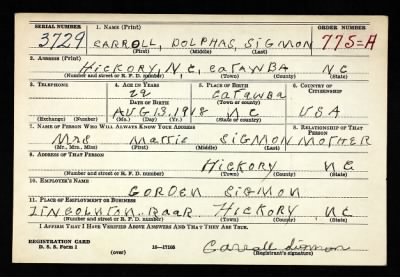 SERIAL NUMBER 1. NAME (Print) ORDER NUMBER
3729 CARROLL, DOLPHAS, SIGMON 775=A
(First) (Middle) (Last)
2. ADDRESS (Print)
HICKORY, N.C, CATAWBA NC
(Number and street or R. F. D. number) (Town) (County) (State)
3. TELEPHONE 4. AGE IN YEARS 5. PLACE OF BIRTH 6. COUNTRY OF CITIZENSHIP
22 CATAWBA
DATE OF BIRTH (Town or county)
AUG 13, 1918 NC USA
(Exchange) (Number) (Mo.) (Day) (Yr.) (State or country)
7. NAME OF PERSON WHO WILL ALWAYS KNOW YOUR ADDRESS 8. RELATIONSHIP OF THAT PERSON
Mrs Mattie SIGMON MOTHER
(Mr., Mrs., Miss) (First) (Middle) (Last)
9. ADDRESS OF THAT PERSON
HICKORY NC
(Number and street or R. F. D. number) (Town) (County) (State)
10. EMPLOYER'S NAME
GORDEN SIGMON
11. PLACE OF EMPLOYMENT OR BUSINESS
HICKORY NC
(Number and street or R. F. D. number) (Town) (County) (State)
I AFFIRM THAT I HAVE VERIFIED ABOVE ANSWERS AND THAT THEY ARE TRUE.
REGISTRATION CARD
D. S. S. Form 1 (over) 16—17105 Carroll Sigmon
(Registrant's signature)